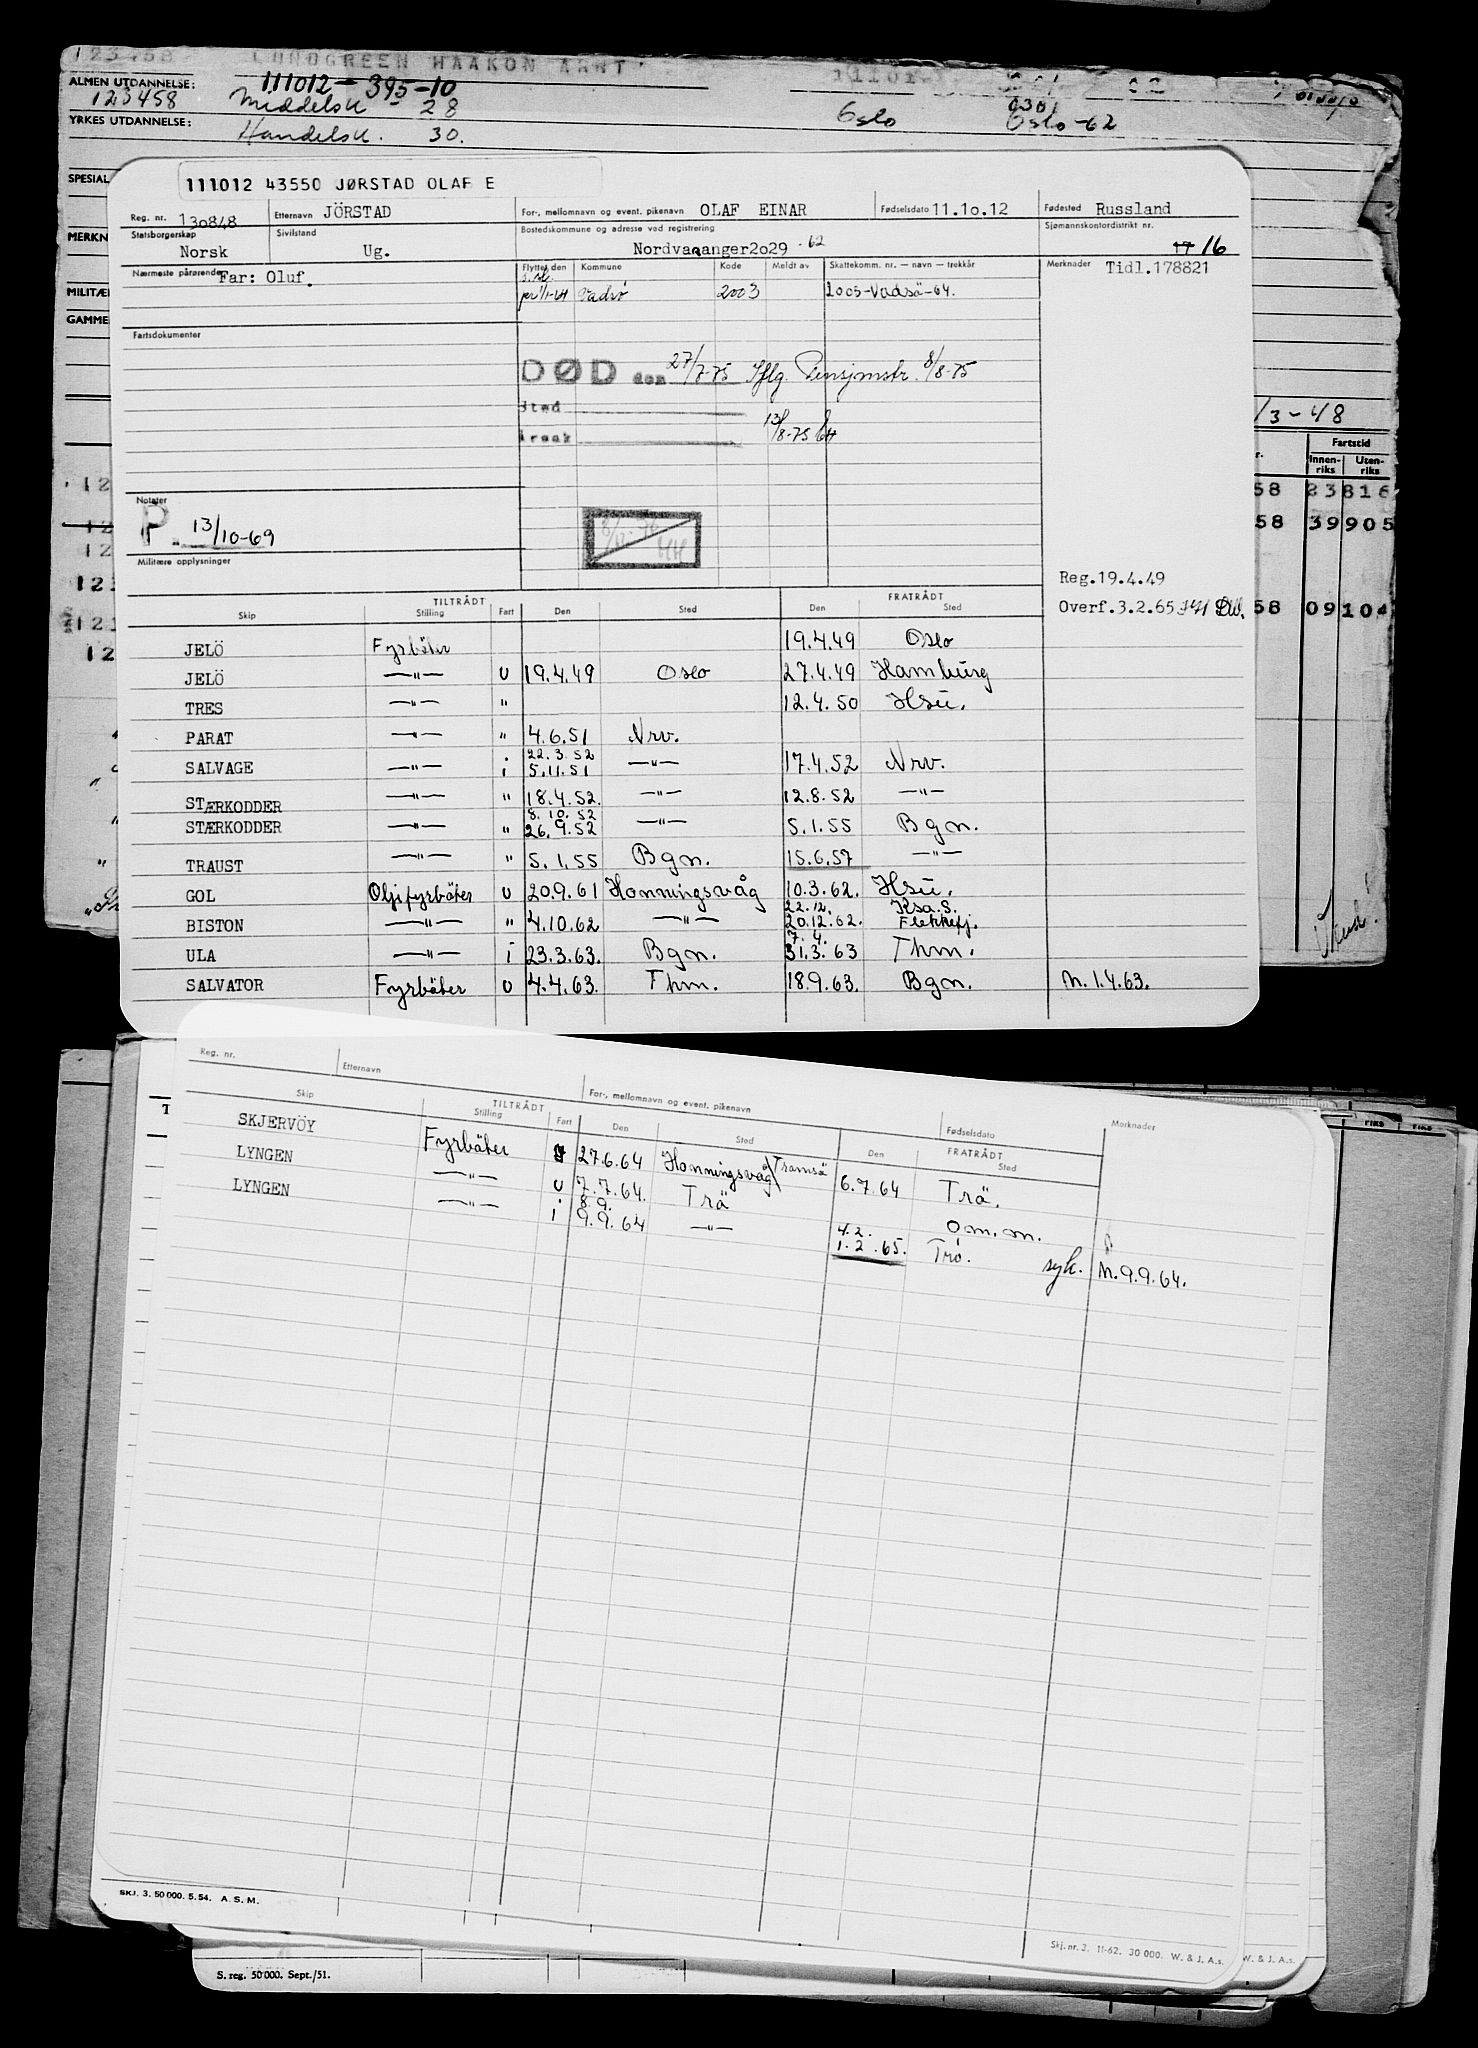 123458 LUNDGREEN HAAKON ARNT
ALMEN UTDANNELSE: 111012-395-10
123458 Middelsk 28 Oslo 0301 Oslo-62
YRKES UTDANNELSE: Handelsk. 30.
SPESIAL
MERKN
MILITÆ
GAMME
111012 43550 JØRSTAD OLAF E
Reg. nr. 130848 Etternavn JÖRSTAD For-, mellomnavn og event. pikenavn OLAF EINAR Fødselsdato 11.10.12 Fødested Russland
Statsborgerskap Norsk Sivilstand Ug. Bostedskommune og adresse ved registrering Nordvaranger2029 -62 Sjømannskontordistrikt nr. 17 16
Nærmeste pårørende Far: Oluf. Flyttet den Kommune Kode Meldt av Skattekomm. nr. — navn — trekkår Merknader Tidl.178821
per 1/1-64 Vadsö 2003 2003-Vadsö-64.
Fartsdokumenter
DØD den 27/7-75 Iflg. Pensjonstr. 8/8-75
Sted
Årsak 13/8-75
/3-48
r. Fartstid
Innen-riks Uten-riks
58 23 816
58 39 905
Notater
P. 13/10-69
Militære opplysninger
Reg.19.4.49
Overf.3.2.65
58 09 104
TILTRÅDT FRATRÅDT
Skip Stilling Fart Den Sted Den Sted
JELÖ Fyrböter 19.4.49 Oslo
JELÖ —"— u 19.4.49 Oslo 27.4.49 Hamburg
TRES —"— " 12.4.50 Hsu.
PARAT —"— " 4.6.51 Nrv.
22.3.52
SALVAGE —"— i 5.11.51 —"— 17.4.52 Nrv.
STÆRKODDER —"— " 18.4.52. —"— 12.8.52 —"—
8.10.52
STÆRKODDER —"— " 26.9.52 —"— 5.1.55 Bgn.
TRAUST —"— " 5.1.55 Bgn. 15.6.57 —"—
GOL Oljefyrböter u 20.9.61 Honningsvåg 10.3.62. Hsu.
22.12. Ksa.S.
BISTON —"— " 4.10.62 —"— 20.12.62. Flekkefj.
7.4.
ULA —"— i 23.3.63. Bgn. 31.3.63 Thm.
SALVATOR Fyrböter u 4.4.63. Thm. 18.9.63. Bgn. M.1.4.63.
Reg. nr. Etternavn For-, mellomnavn og event. pikenavn Fødselsdato Merknader
TILTRÅDT FRATRÅDT
Skip Stilling Fart Den Sted Den Sted
SKJERVÖY Fyrböter 27.6.64 Honningsvåg/Tromsö 6.7.64 Trö.
LYNGEN —"— u 7.7.64. Trö Om.m.
8.9. 4.2.
LYNGEN —"— i 9.9.64 —"— 1.2.65. Trö. syk. M.9.9.64.
RIKS RIKS
SKJ. 3. 50 000. 5. 54. A. S. M.
Skj. nr. 3. 11-62. 30 000. W. & J. A.s. W. & J. A.s.
S. reg. 50 000. Sept./51.